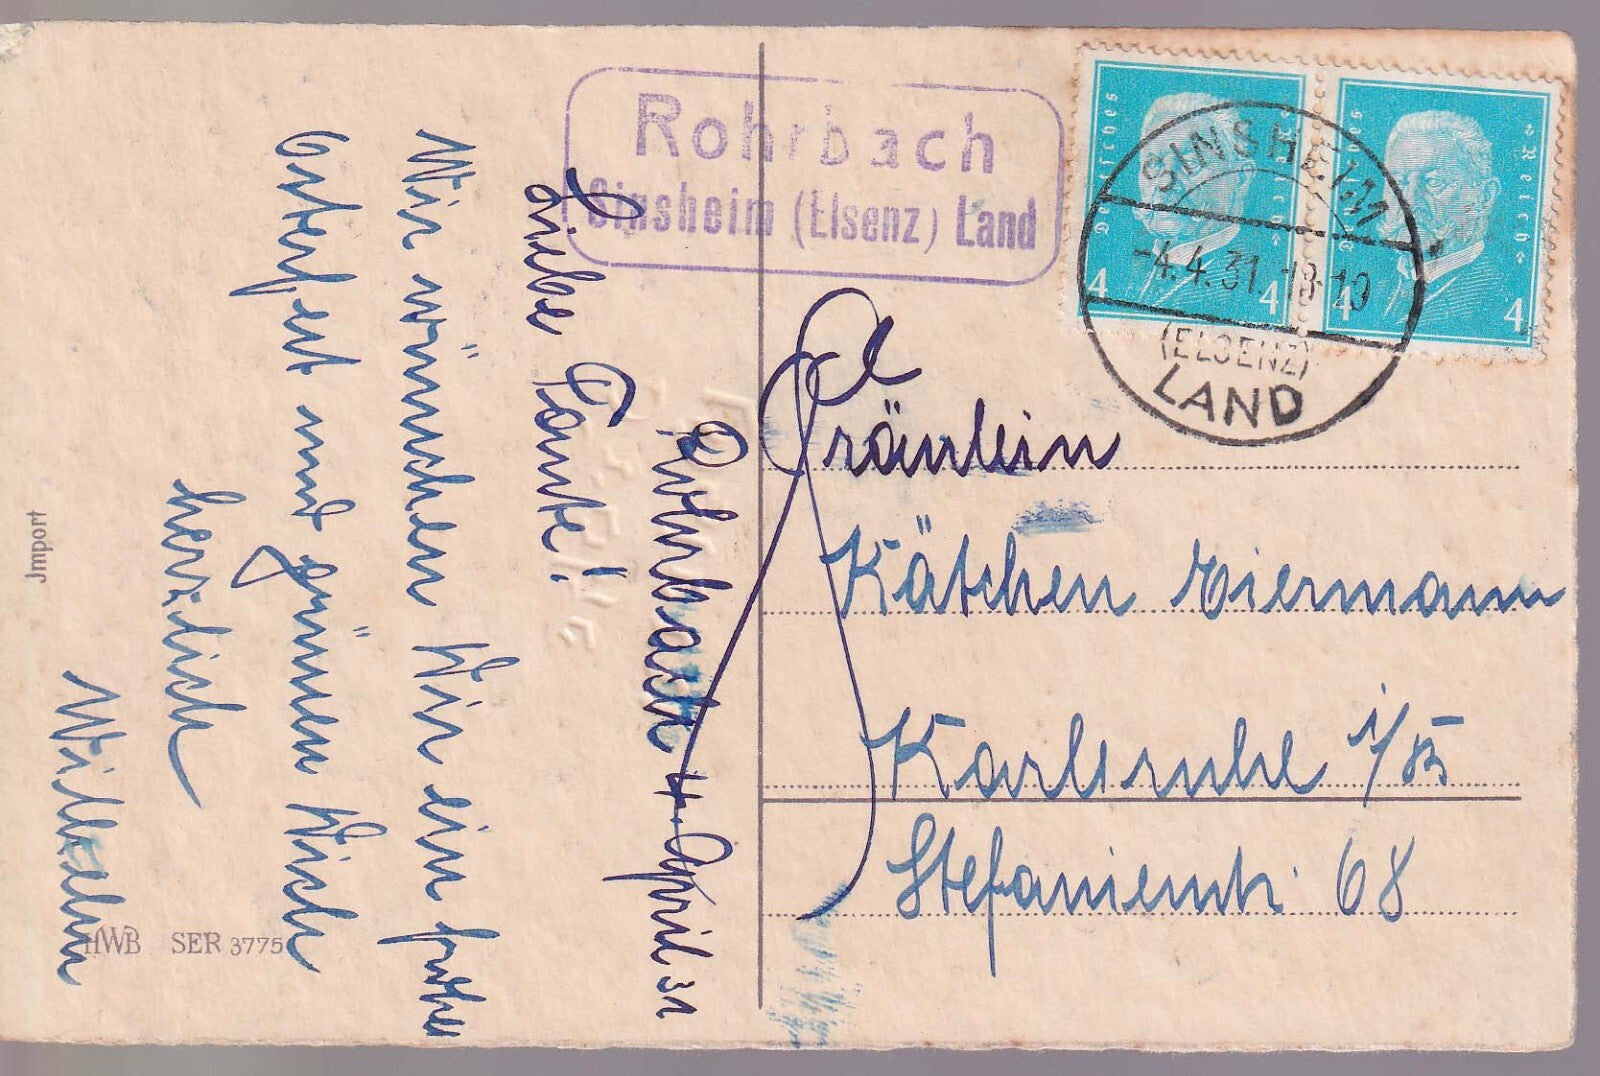 Rohrbach
Sinsheim (Elsenz) Land
Deutsches Reich
4 4
Deutsches Reich
4 4
SINSHEIM
-4.4.31.18-19
(ELSENZ)
LAND
Rohrbach 4. April 31
Liebe Tante!
Wir wünschen Dir ein frohes
Osterfest und grüssen Dich
herzlich
Wilhelm
Fräulein
Kätchen Eiermann
Karlsruhe i/B
Stefanienstr. 68
Import
HWB SER 3775